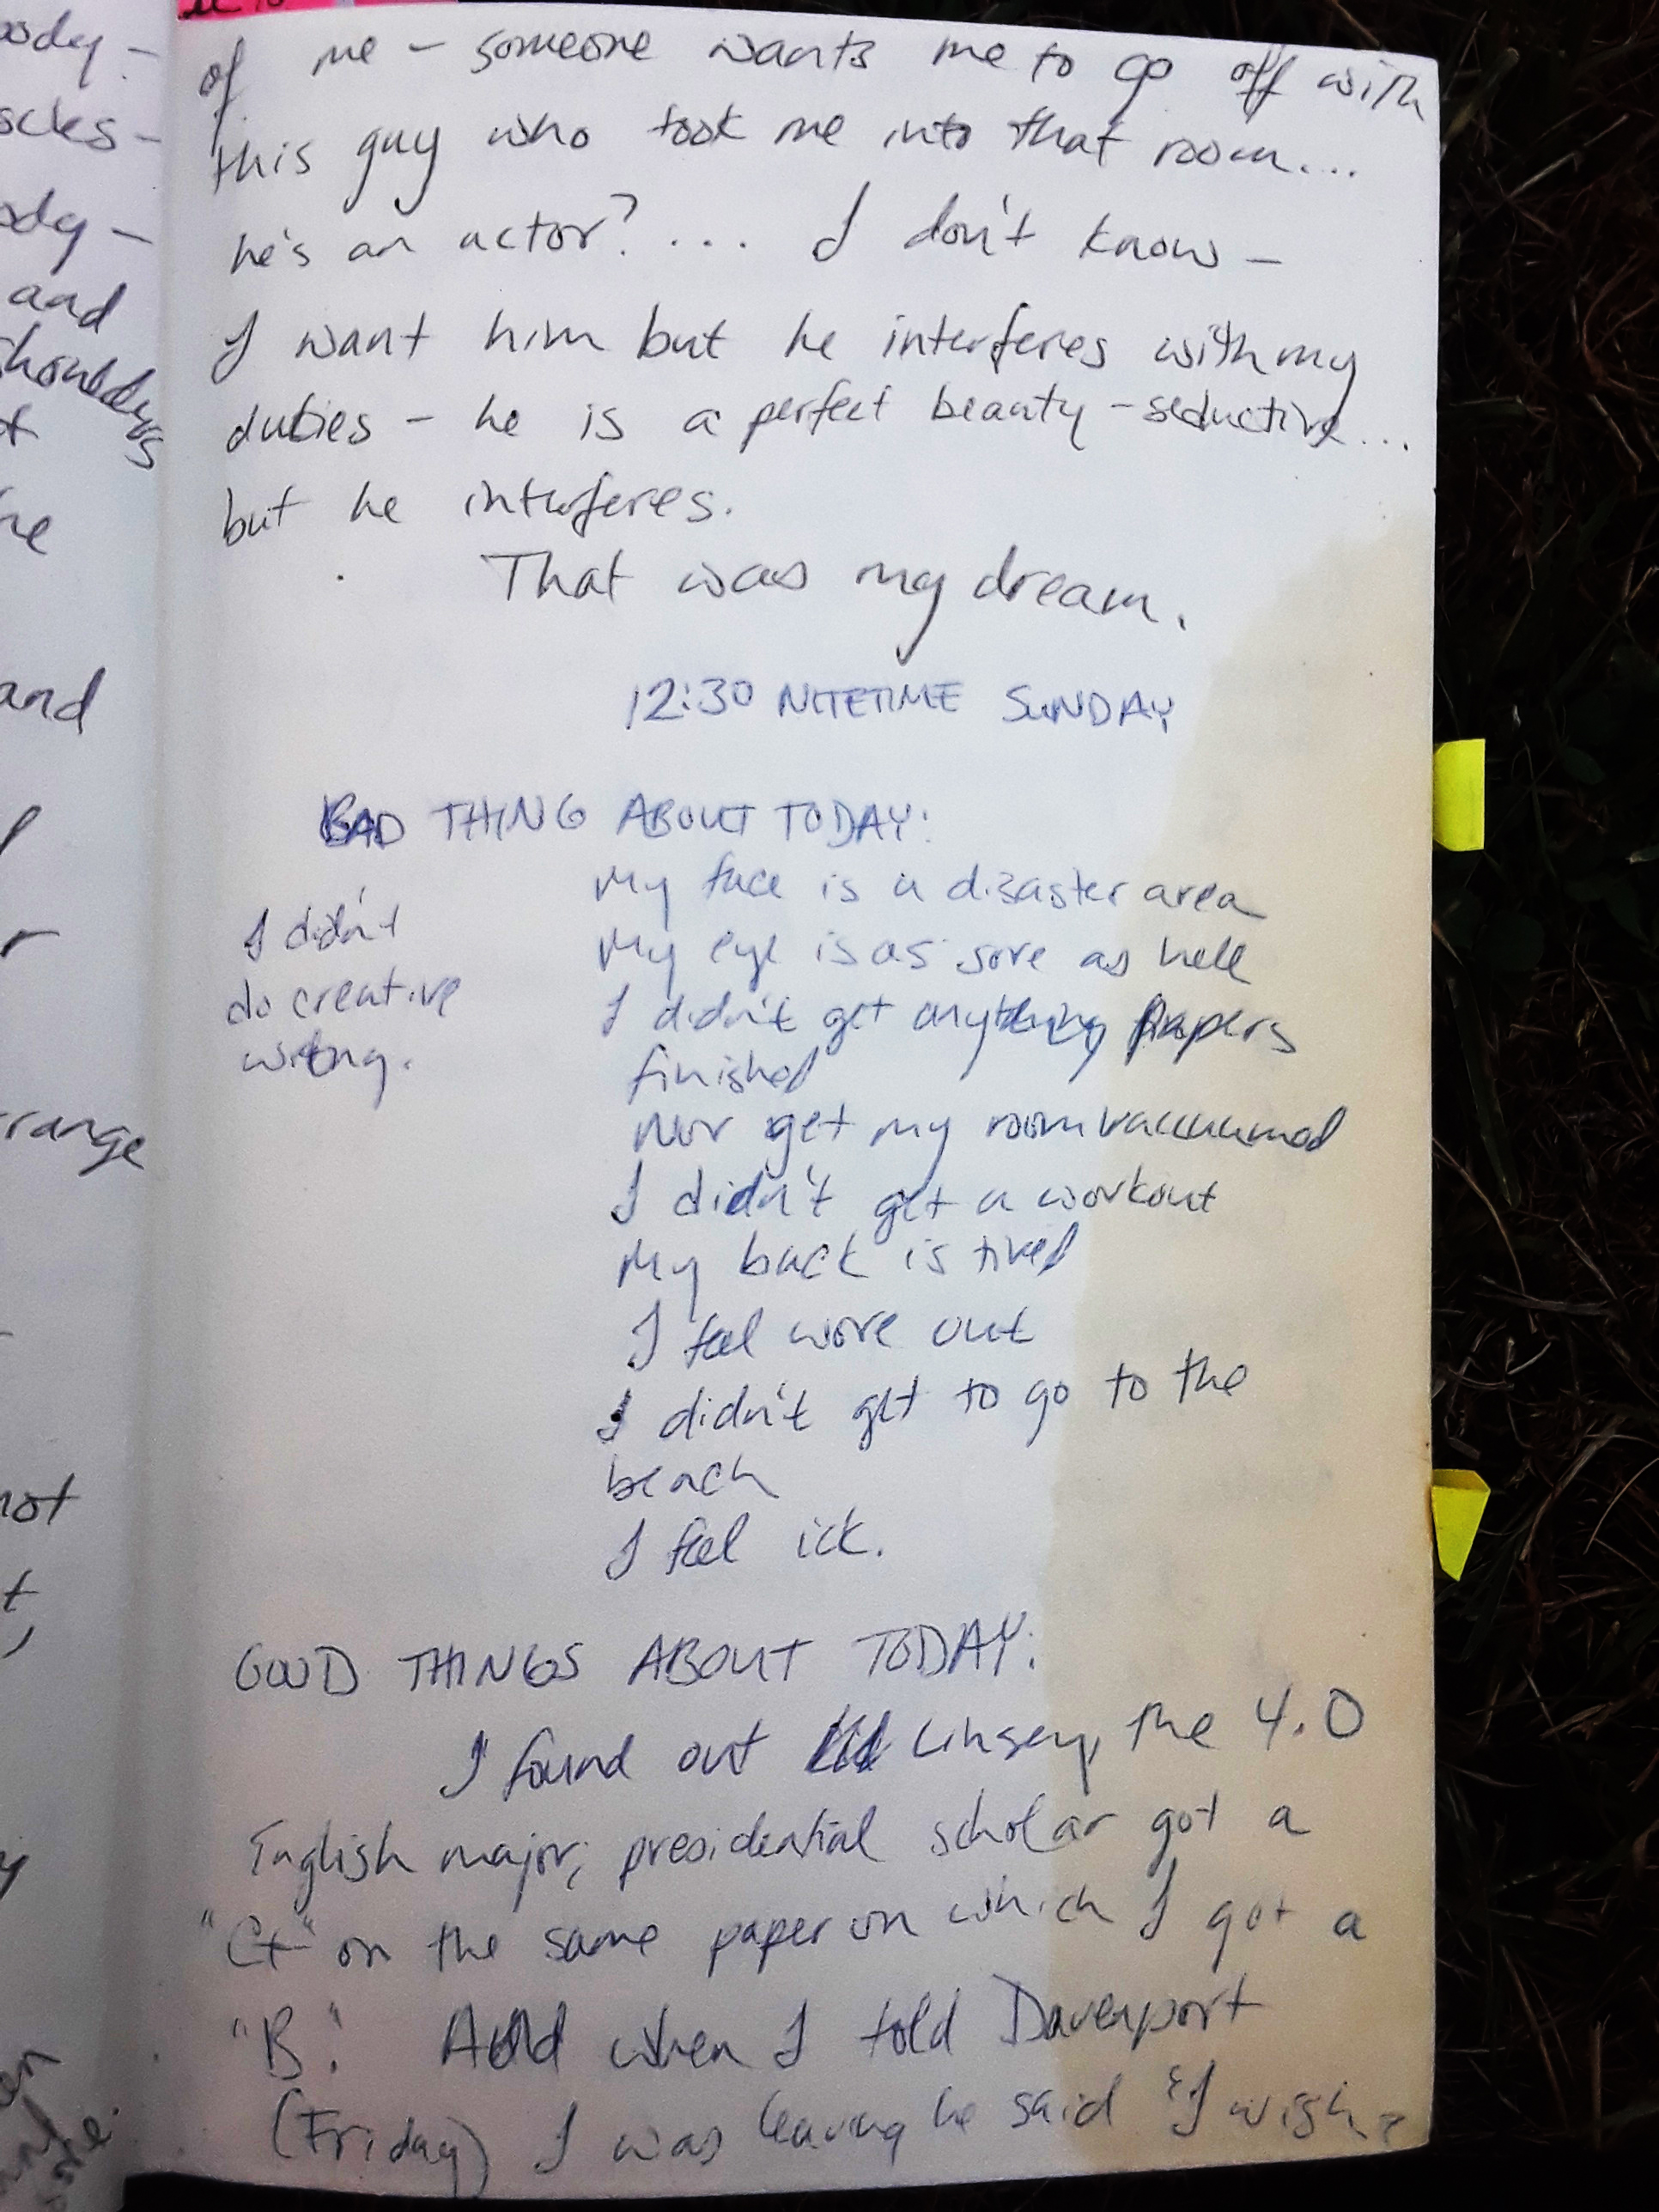 of me – someone wants me to go off with
this guy who took me into that room....
he's an actor?... I don't know –
I want him but he interferes with my
duties – he is a perfect beauty – seductive...
but he interferes.
That was my dream.
12:30 NITETIME SUNDAY
BAD THING ABOUT TODAY:
My face is a disaster area
My eye is as sore as hell
I didn't get anything papers
finished
Nor get my room vacuumed
I didn't get a workout
My back is tired
I feel wore out
I didn't get to go to the
beach
I feel ick.
I didn't
do creative
writing.
GOOD THINGS ABOUT TODAY:
I found out Linsey, the 4.0
English major, presidential scholar got a
"C+" on the same paper on which I got a
"B." And when I told Davenport
(Friday) I was leaving he said "I wish
ody –
scles –
ody –
and
shoulders
t
he
and
r
range
not
t,
y